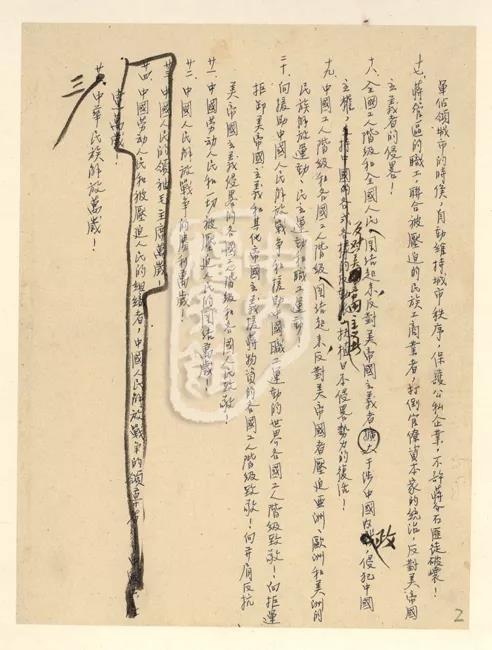 軍佔領城市的時候，自動維持城市秩序，保護公私企業，不許蔣介石匪徒破壞！
十七、蔣管區的職工，聯合被壓迫的民族工商業者，打倒官僚資本家的統治，反對美帝國
主義者的侵略！
十八、全國工人階級和全國人民團結起來，反對美帝國主義者干涉中國內政，侵犯中國
主權，反對美帝國主義者扶植日本侵略勢力的復活！
十九、中國工人階級和各國工人階級團結起來，反對美帝國者壓迫亞洲、歐洲和美洲的
民族解放運動、民主運動和職工運動！
二十、向援助中國人民解放戰爭和援助中國職工運動的世界各國工人階級致敬！向拒運
拒卸美帝國主義和其他帝國主義援蔣物資的各國工人階級致敬！向并肩反抗
美帝國主義侵略的各國工人階級和各國人民致敬！
廿一、中國勞動人民和一切被壓迫人民的團結萬歲！
廿二、中國人民解放戰爭的勝利萬歲！
廿三、中國人民的領袖毛主席萬歲！
廿四、中國勞動人民和被壓迫人民的組織者，中國人民解放戰爭的領導者
萬歲！
中華民族解放萬歲！
三
2